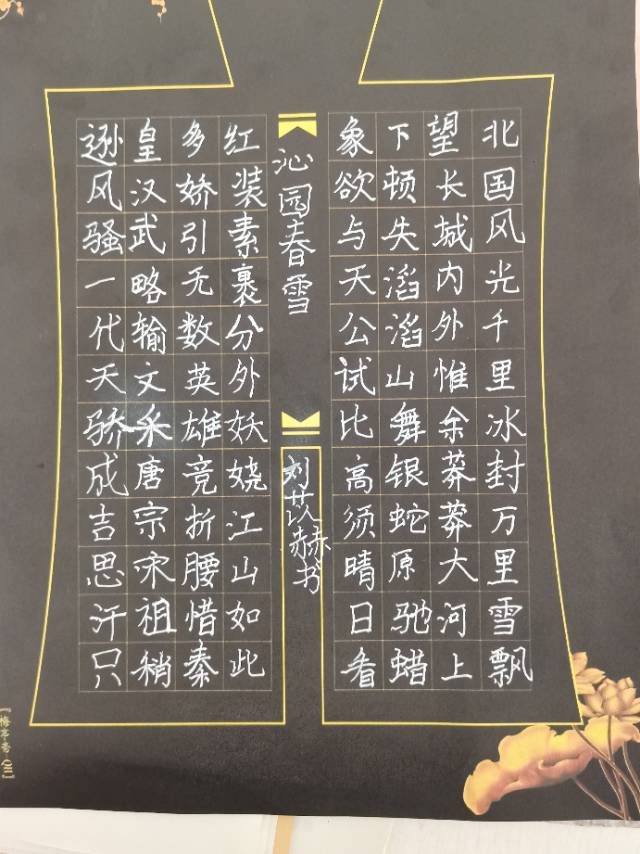 北国风光千里冰封万里雪飘
望长城内外惟余莽莽大河上
下顿失滔滔山舞银蛇原驰蜡
象欲与天公试比高须晴日看
沁园春雪
刘苡赫书
红装素裹分外妖娆江山如此
多娇引无数英雄竞折腰惜秦
皇汉武略输文采唐宗宋祖稍
逊风骚一代天骄成吉思汗只